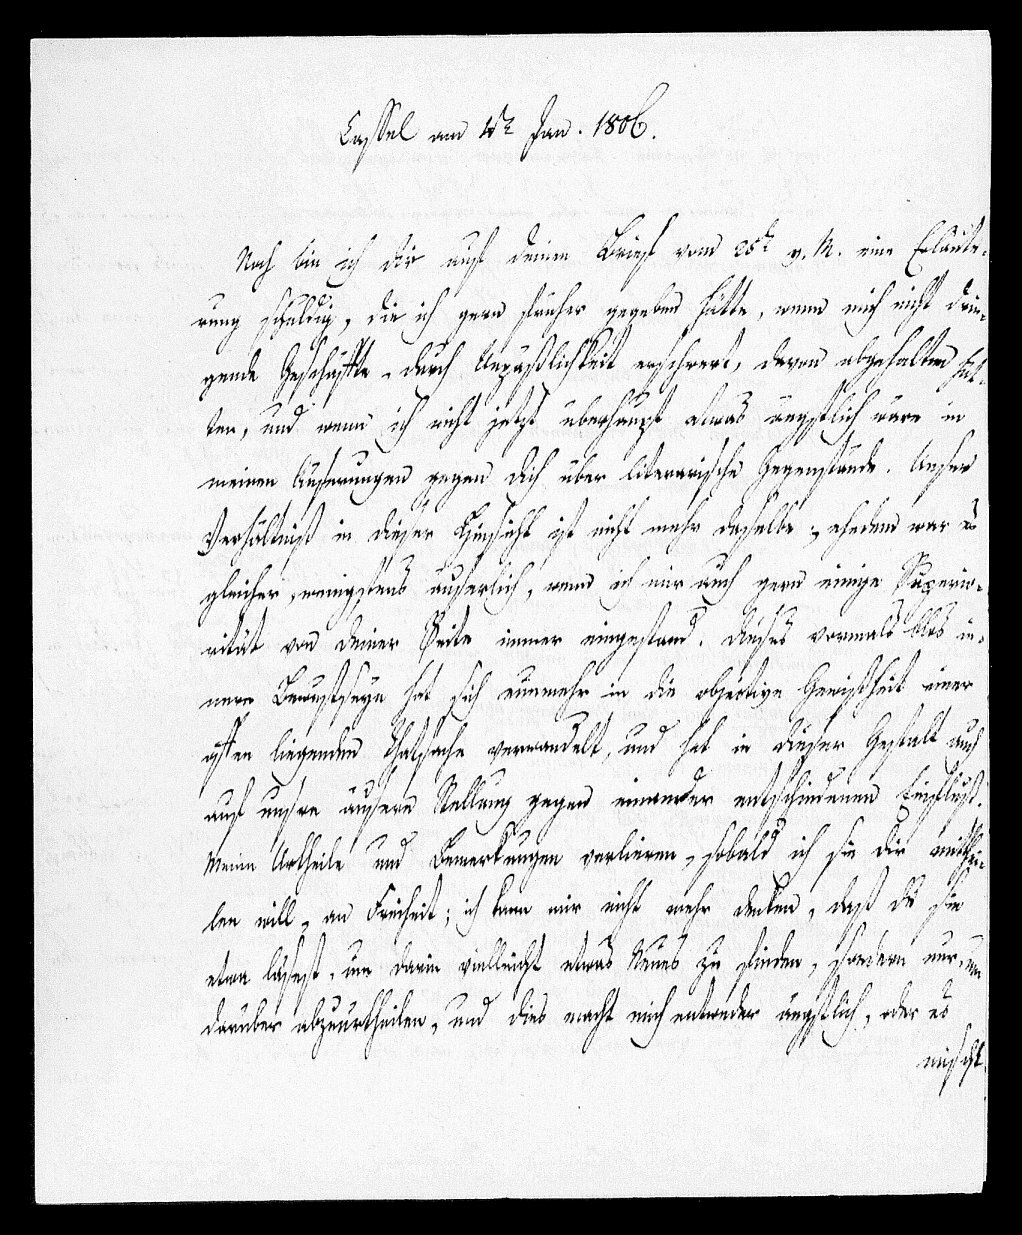 Cassel am 4t. Jan. 1806.
Noch bin ich dir auf deinen Brief vom 25t. v. M. eine Erläute-
rung schuldig, die ich gern früher gegeben hätte, wenn mich nicht drin-
gende Geschäffte, durch Unpäßlichkeit erschwert, davon abgehalten hät-
ten, und wenn ich nicht jetzt überhaupt etwas ängstlich wäre in
meinen Äuserungen gegen dich über literarische Gegenstände. Unser
Verhältniß in dieser Hinsicht ist nicht mehr dasselbe; ehedem war es
gleicher, wenigstens äuserlich, wenn ich mir auch gern einige Superio-
rität von deiner Seite immer eingestand. Dieses vormals blos in-
nere Bewustseyn hat sich nunmehr in die objective Gewißheit einer
offen liegenden Thatsache verwandelt, und hat in dieser Gestalt auch
auf unsre äusere Stellung gegen einander entschiedenen Einfluß.
Meine Urtheile und Bemerkungen verlieren, sobald ich sie dir mitthei-
len will, an Freiheit; ich kann mir nicht mehr denken, daß du sie
etwa läsest, um darin vielleicht etwas Neues zu finden, sondern nur, um
darüber abzuurtheilen, und dies macht mich entweder ängstlich, oder es